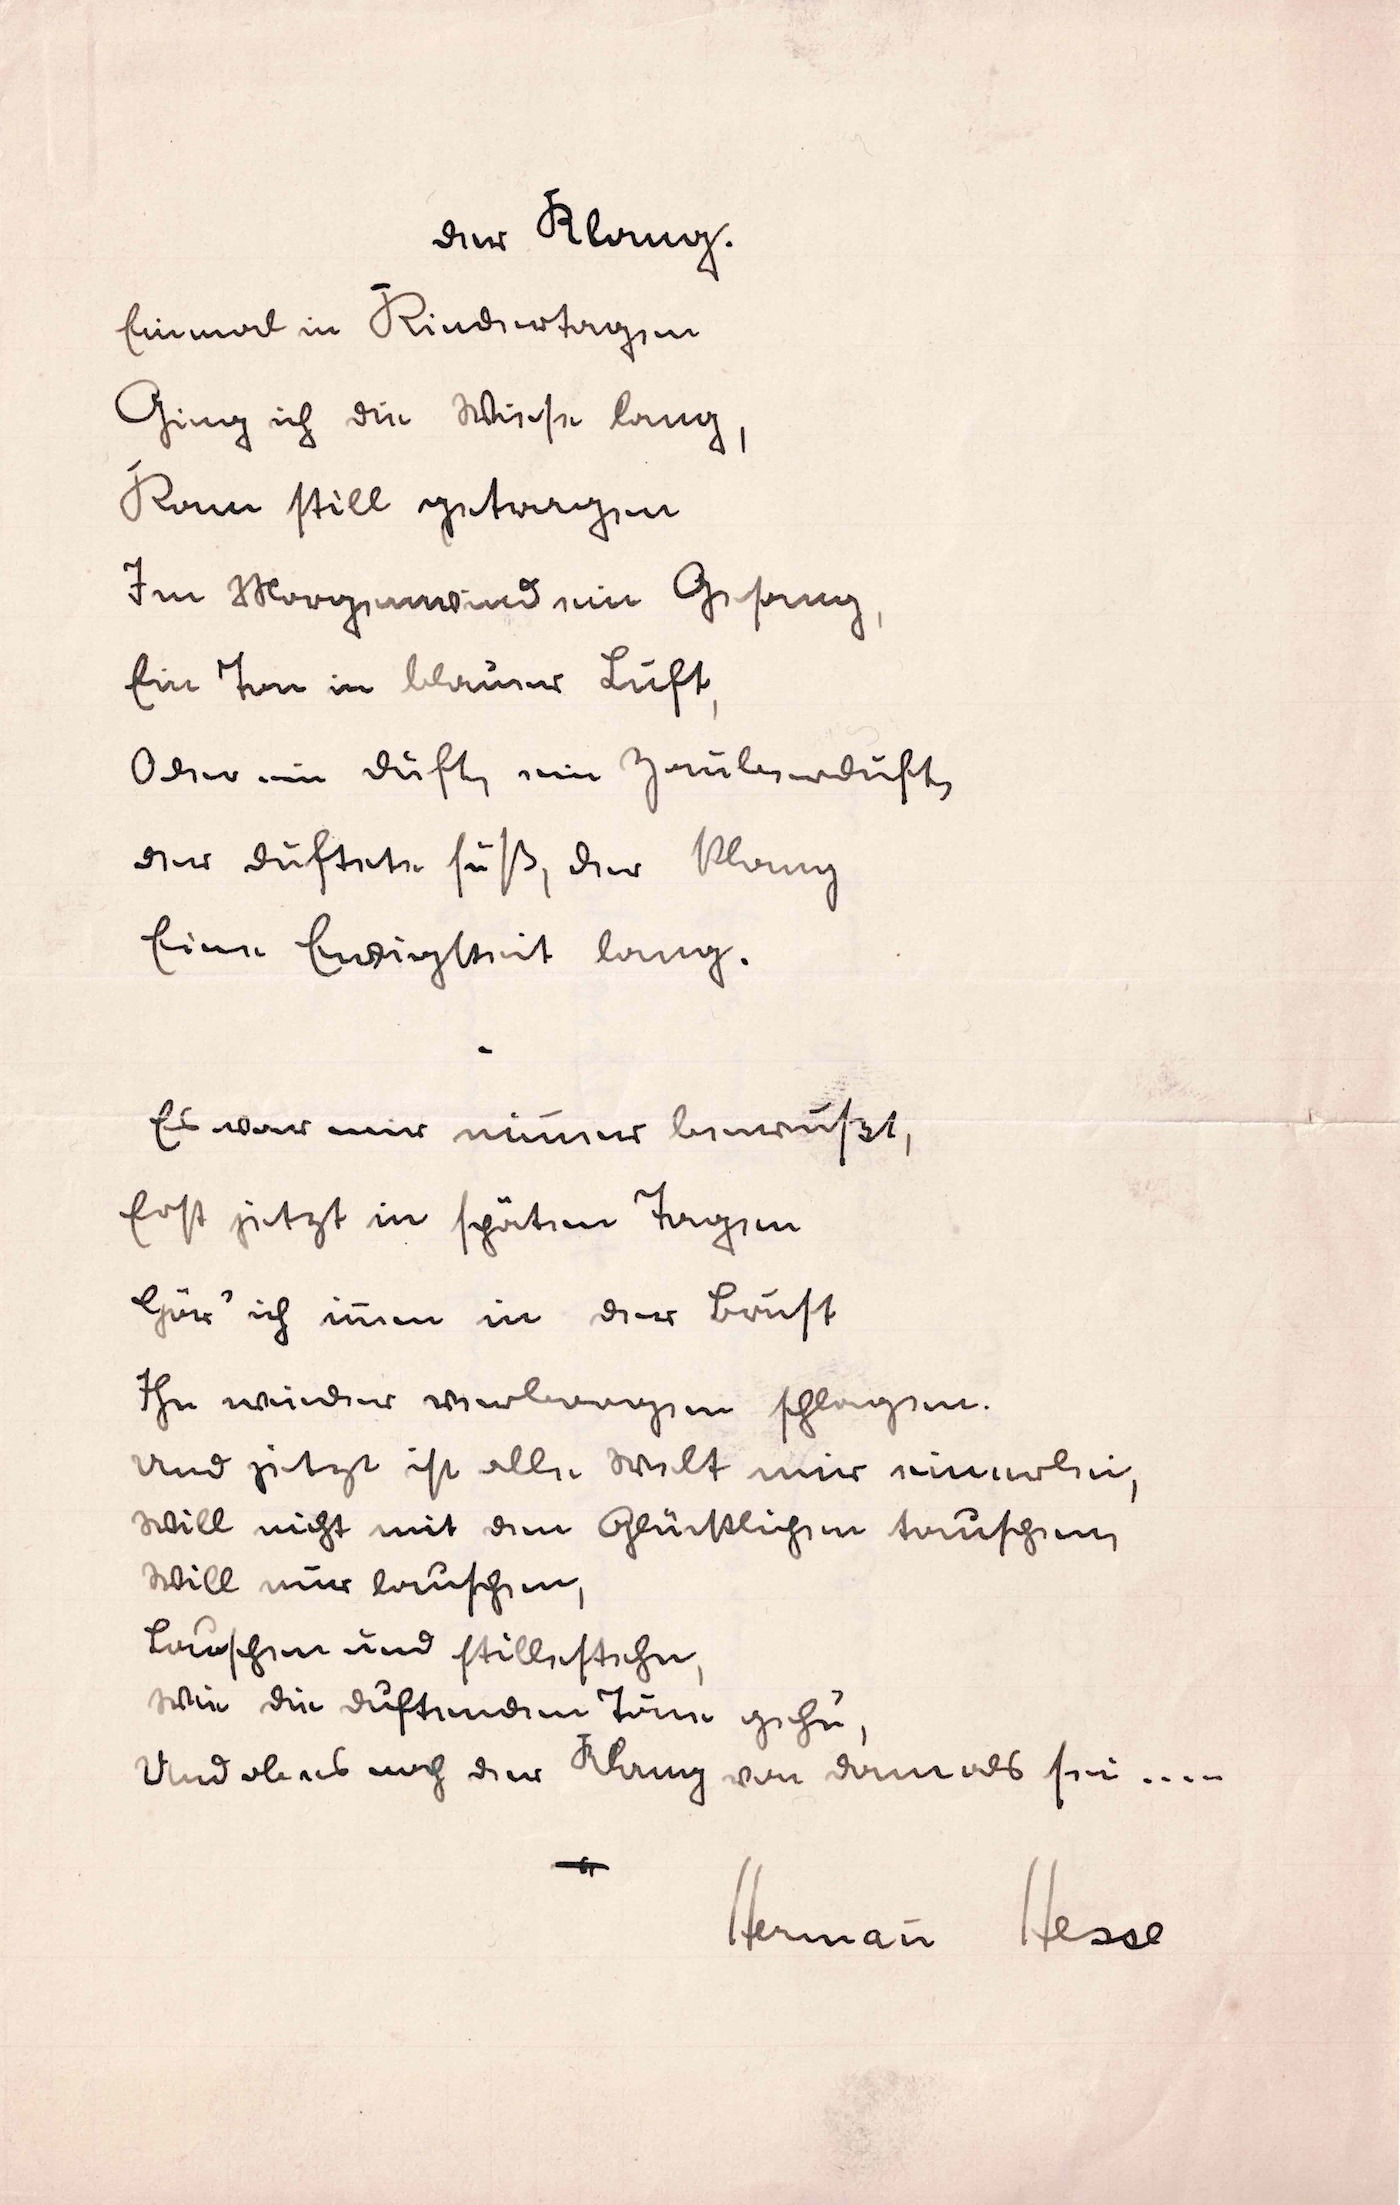 der Klang.
Einmal in Kindertagen
Ging ich die Wiese lang,
Kam still getragen
Im Morgenwind ein Gesang,
Ein Ton in blauer Luft,
Oder ein Duft, ein Zauberduft,
der duftete süß, der Klang
Eine Ewigkeit lang.
-
Es war mir nim̄er bewußt,
Erst jetzt in späten Tagen
Hör' ich in̄en in der Brust
Ihn wieder verborgen schlagen.
Und jetzt ist alle Welt mir einerlei,
Will nicht mit den Glücklichen tauschen,
Will nur lauschen,
Lauschen und stillestehn,
Wie die duftenden Töne gehn,
Und ob es noch der Klang von damals sei .....
Herman̄ Hesse